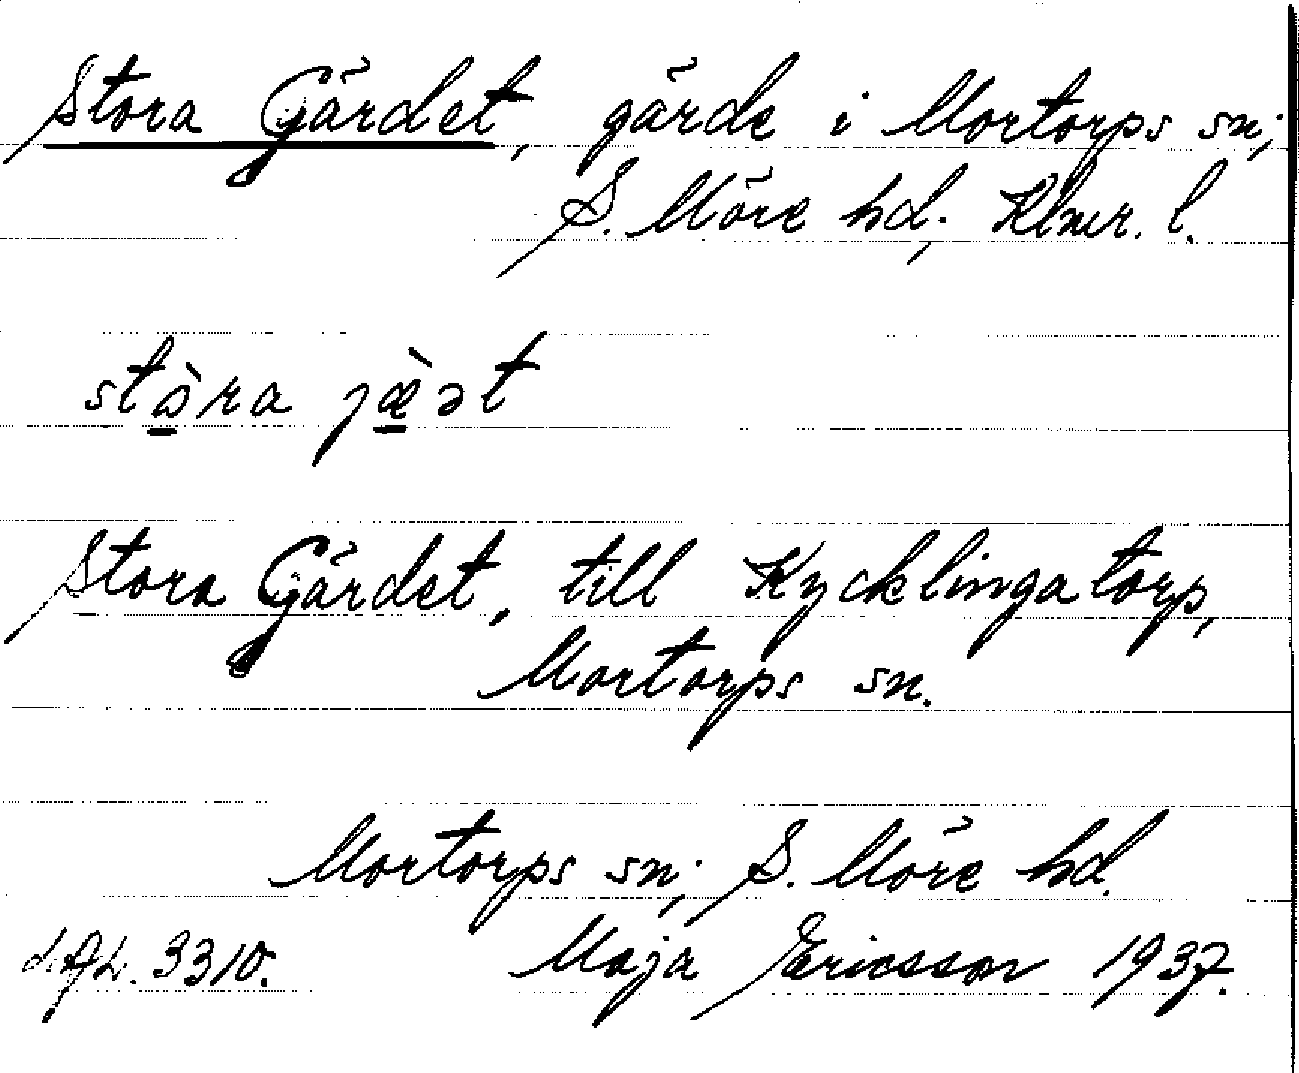 Stora Gärdet, gärde i Mortorps sn;
S. Möre hd; Klmr. l.
stɷ̀ra jæ̀ət
Stora Gärdet, till Kycklingatorp,
Mortorps sn.
Mortorps sn; S. Möre hd.
3310. Maja Ericsson 1937.